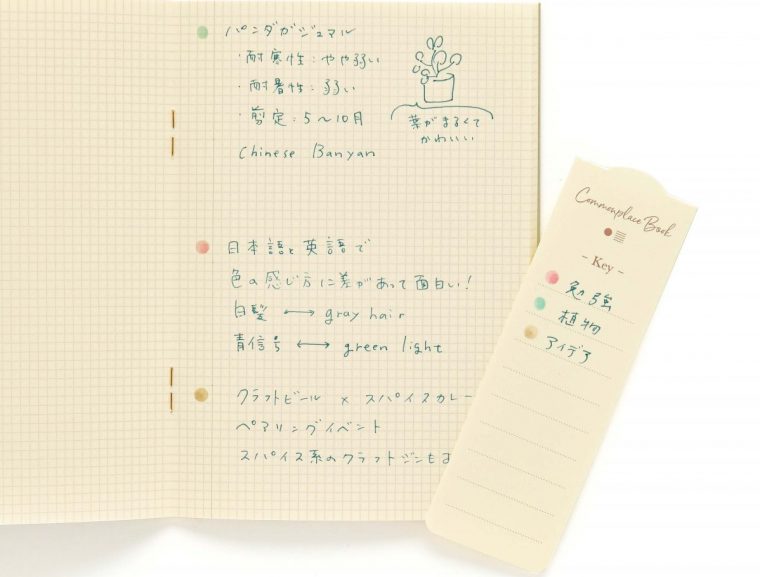 パンダガジュマル
・耐寒性：やや弱い
・耐暑性：弱い
・剪定：5～10月
Chinese Banyan
葉がまるくて
かわいい
日本語と英語で
色の感じ方に差があって面白い！
白髪 ⟷ gray hair
青信号 ⟷ green light
クラフトビール × スパイスカレー
ペアリングイベント
スパイス系のクラフトジンも
Commonplace Book
- Key -
勉強
植物
アイデア